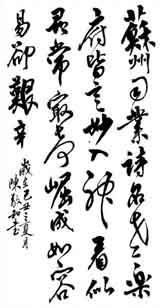 蘇州司業詩名老樂
府皆言妙入神看似
尋常最奇崛成如容
易卻艱辛
歲在己丑之夏月